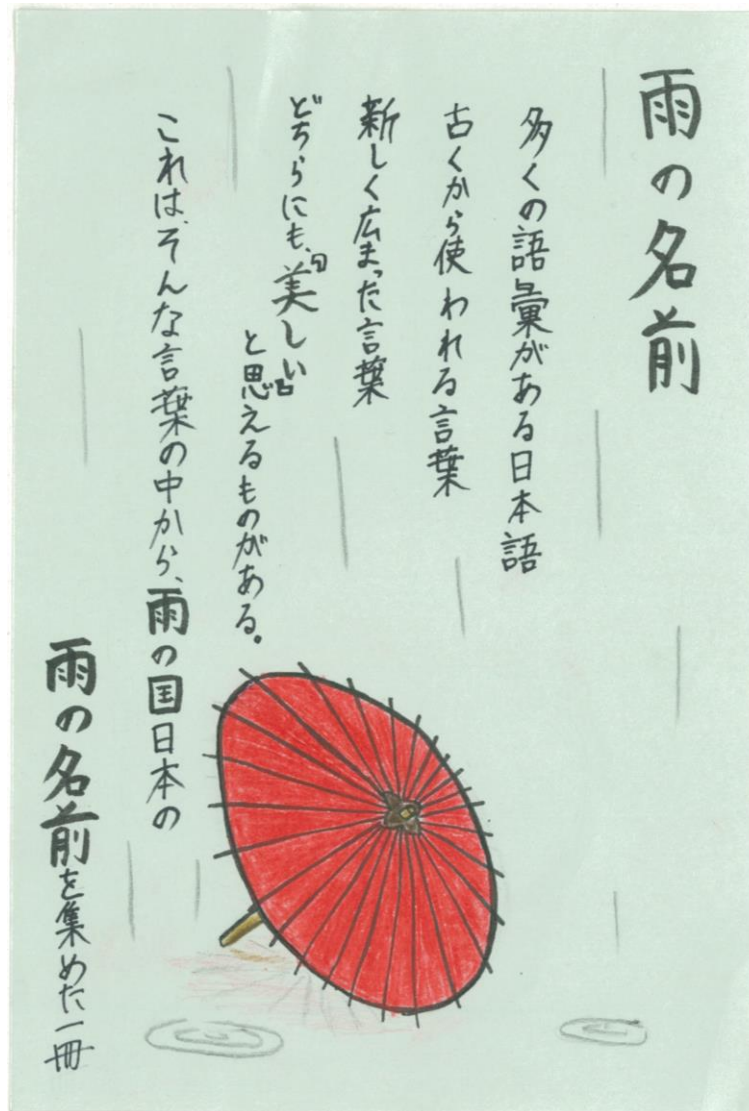 雨の名前
多くの語彙がある日本語
古くから使われる言葉
新しく広まった言葉
どちらにも、「美しい」
と思えるものがある。
これは、そんな言葉の中から、雨の国日本の
雨の名前を集めた一冊